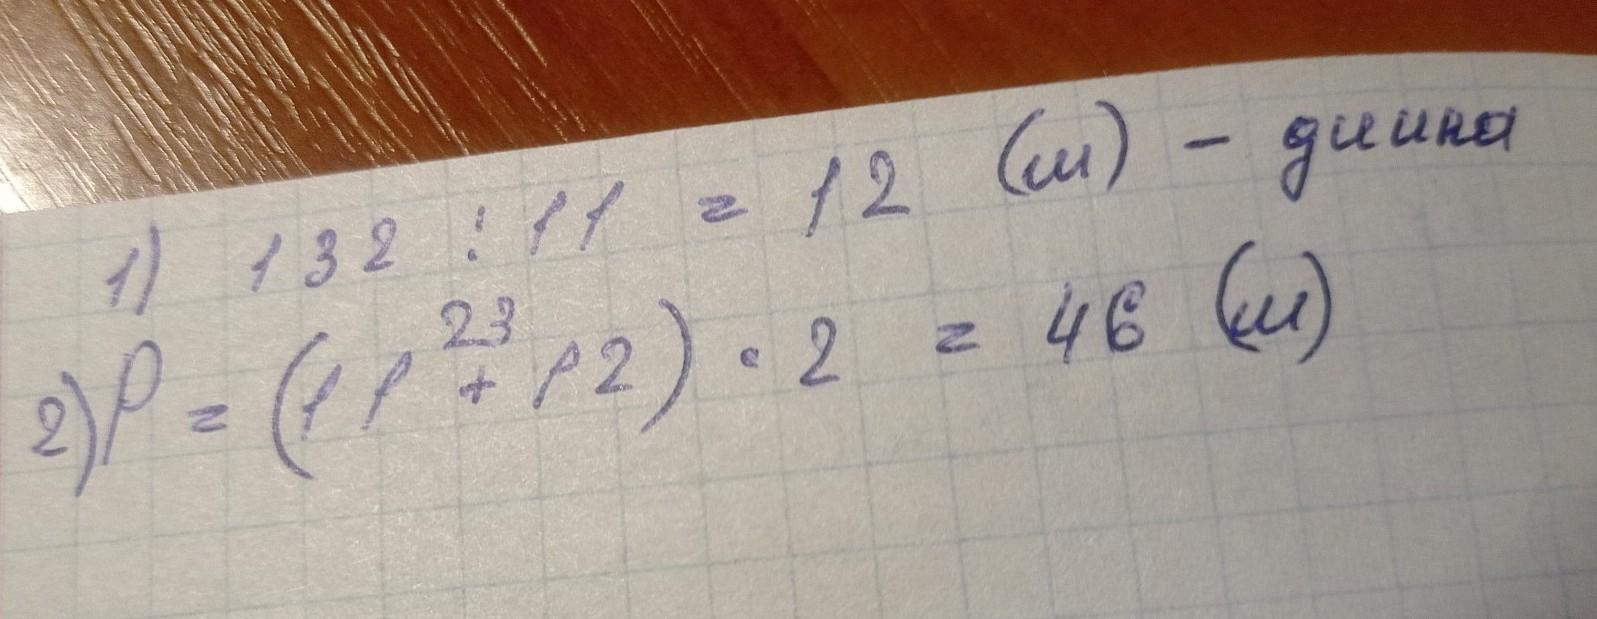 1) 132 : 11 = 12 (м) - длина
23
2) P = (11 + 12) · 2 = 46 (м)